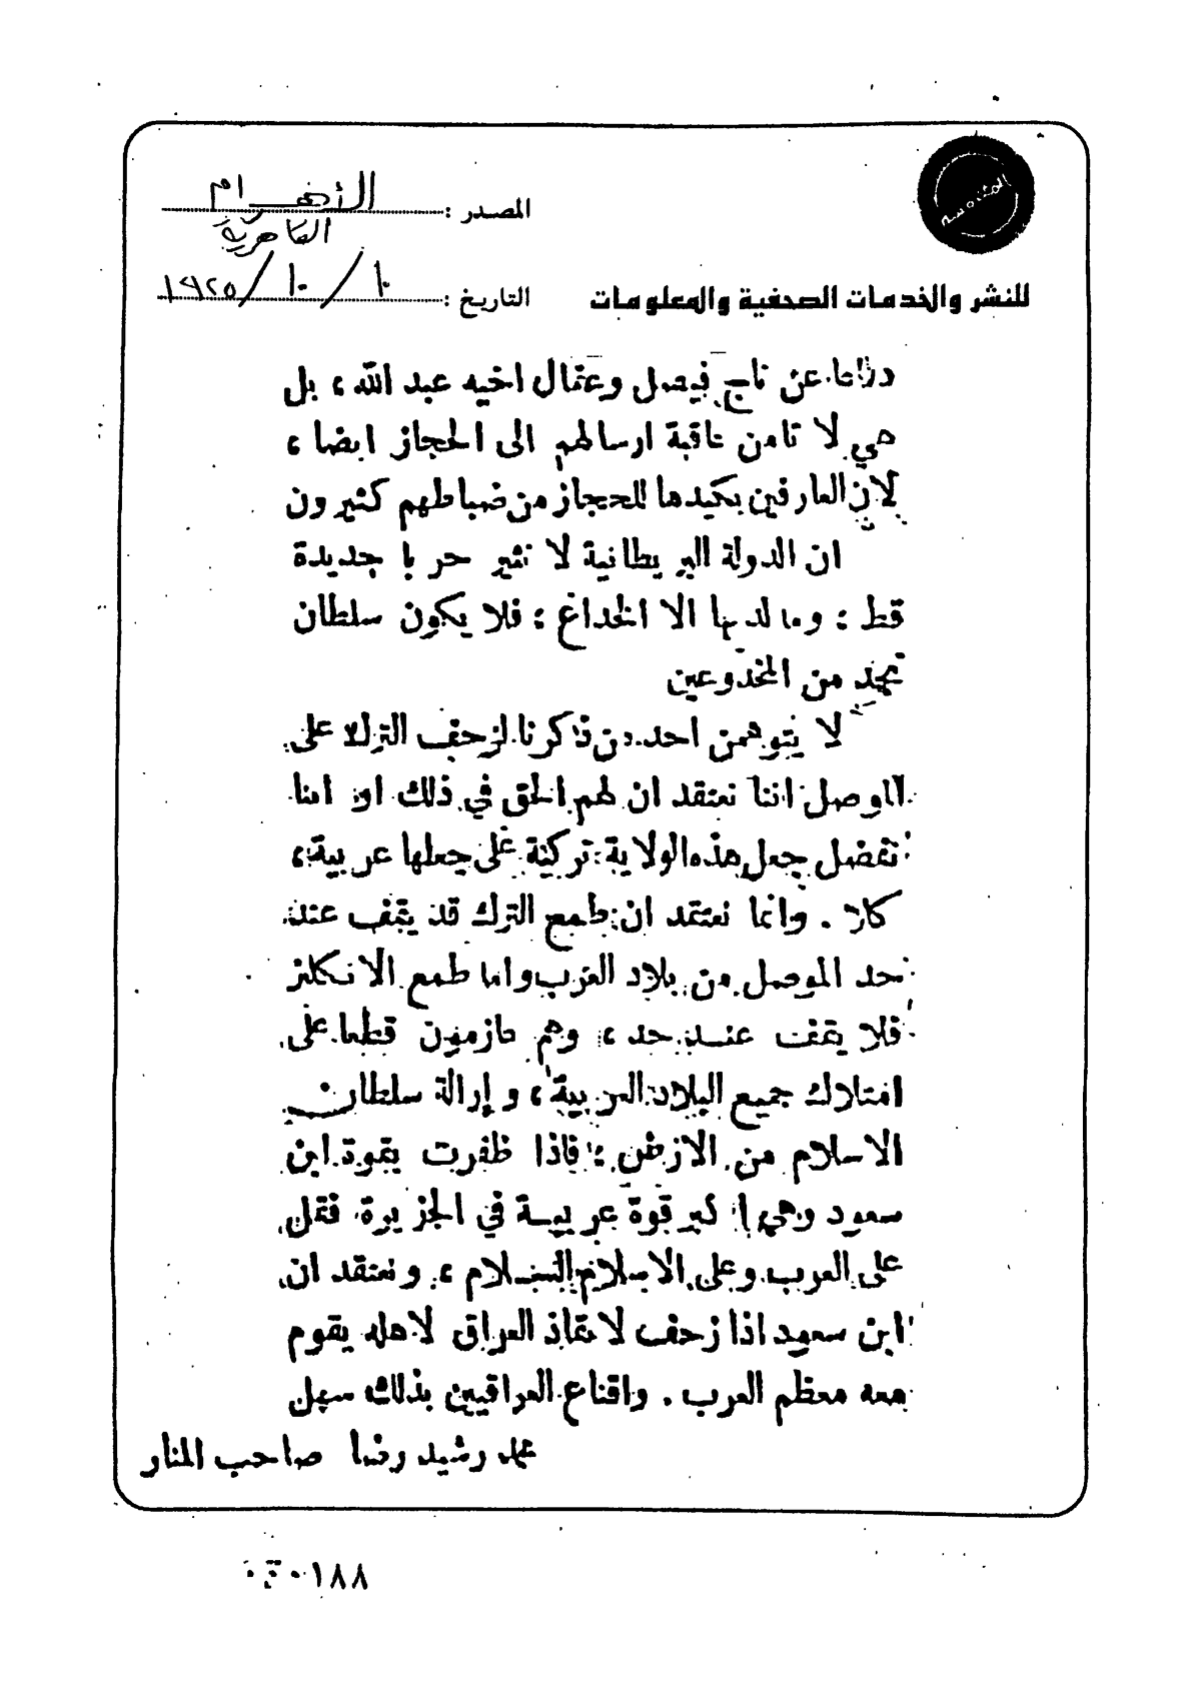 المصدر : الأهرام
القاهرية
التاريخ : ١٠/١٠/١٩٢٥
للنشر والخدمات الصحفية والمعلومات
دفاعا عن تاج فيصل وعقال اخيه عبد الله ، بل
هي لا تامن عاقبة ارسالهم الى الحجاز ايضا ،
لان العارفين بكيدها للحجاز من ضباطهم كثيرون
ان الدولة البريطانية لا تثير حربا جديدة
قط ؛ وما لديها الا الخداع ؛ فلا يكون سلطان
نجد من المخدوعين
لا يتوهمن احد من ذكرنا لزحف الترك على
الموصل اننا نعتقد ان لهم الحق في ذلك او اننا
نفضل جعل هذه الولاية تركية على جعلها عربية ،
كلا . وانما نعتقد ان طمع الترك قد يقف عند
حد الموصل من بلاد العرب واما طمع الانكليز
فلا يقف عند حد ، وهم عازمون قطعا على
امتلاك جميع البلاد العربية ، وإزالة سلطان
الاسلام من الارض ؛ فاذا ظفرت بقوة ابن
سعود وهي اكبر قوة عربية في الجزيرة فقل
على العرب وعلى الاسلام السلام ، ونعتقد ان
ابن سعود اذا زحف لانقاذ العراق لاهله يقوم
معه معظم العرب . واقناع العراقيين بذلك سهل
محمد رشيد رضا صاحب المنار
٠١٨٨